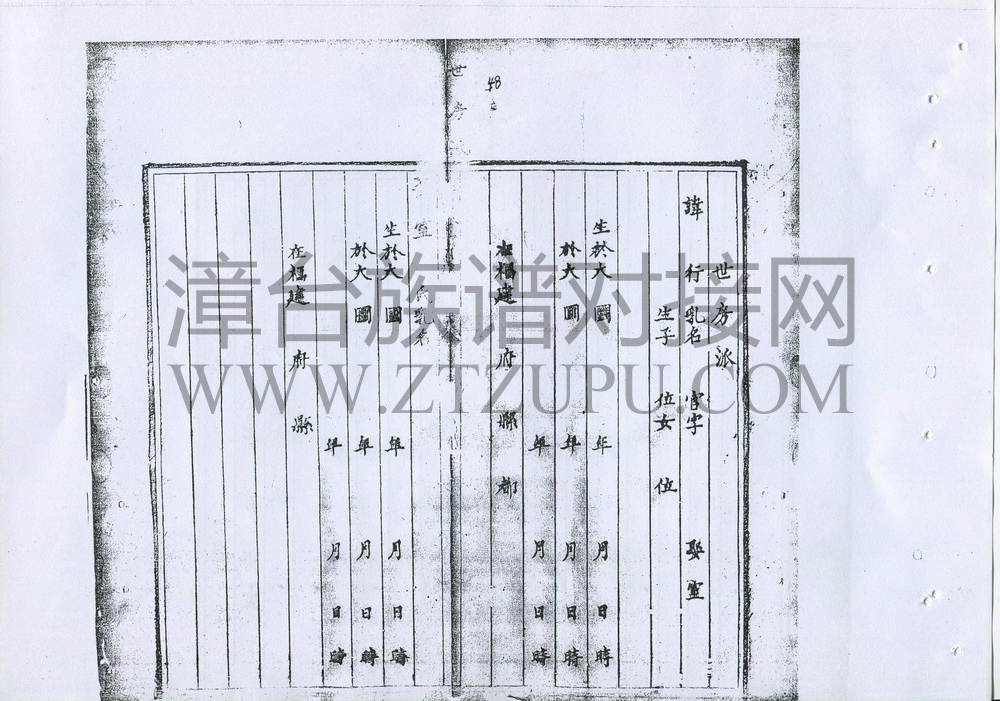 48
世房派
諱 行乳名 官字 娶室
生子 位女 位
生於大 國 年 月 日 時
於大 國 年 月 日 時
年 月 日 時
在福建 府 縣 都
室 氏乳名
生於大 國 年 月 日 時
於大 國 年 月 日 時
年 月 日 時
在福建 府 縣
漳台族谱对接网
WWW.ZTZUPU.COM